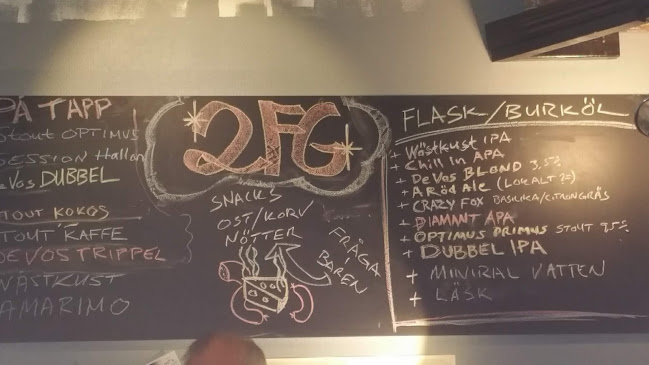 PÅ TAPP
STOUT OPTIMUS
SESSION Hallon
DeVos DUBBEL
STOUT KOKOS
STOUT KAFFE
DEVOS TRIPPEL
VÄSTKUST
AMARIMO
2FG
SNACKS
OST/KORV
NÖTTER
FRÅGA
I
BAREN
FLASK/BURKÖL
+ Wästkust IPA
+ Chill In APA
+ DeVos BLOND 3,5%
+ A Röd Ale (LOKALT
+ CRAZY FOX BASILIKA/CITRONGRÄS
+ DIAMANT APA
+ OPTIMUS PRIMUS STOUT 9,5%
+ DUBBEL IPA
+ MINIRAL VATTEN
+ LÄSK